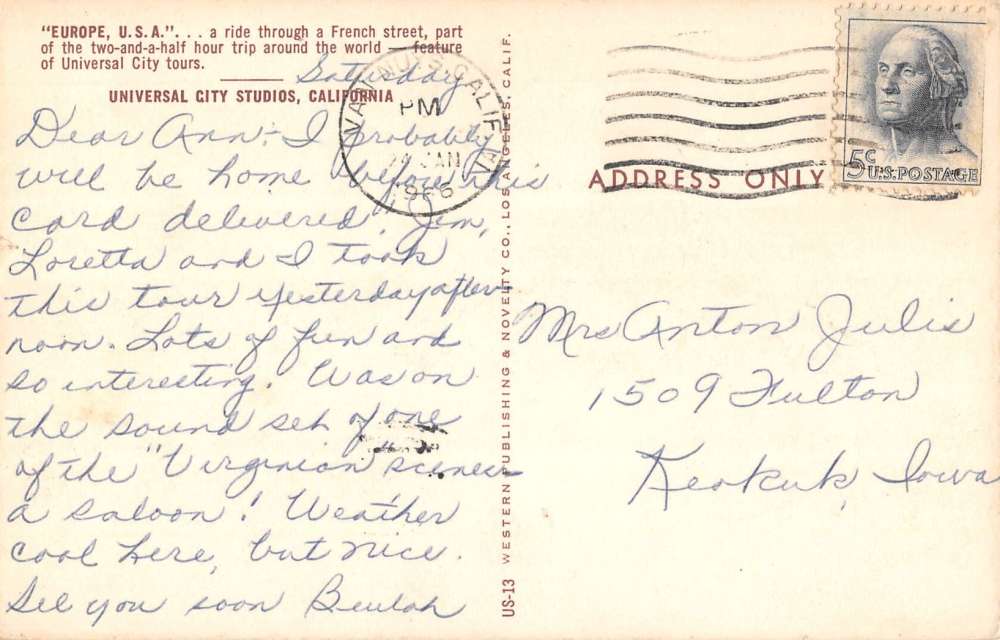 "EUROPE, U.S.A.". . . a ride through a French street, part
of the two-and-a-half hour trip around the world — feature
of Universal City tours.
UNIVERSAL CITY STUDIOS, CALIFORNIA
Saturday
Dear Ann:- I probably
will be home before this
card delivered. Jim,
Loretta and I took
this tour yesterday after-
noon. Lots of fun and
so interesting. Was on
the sound set of one
of the "Virginian" scenes
a saloon! Weather
cool here, but nice.
See you soon Beulah
US-13 WESTERN PUBLISHING & NOVELTY CO., LOS ANGELES, CALIF.
VAN NUYS, CALIF
PM
JAN
ADDRESS ONLY
5c U.S. POSTAGE
Mrs Anton Julis
1509 Fulton
Keokuk, Iowa